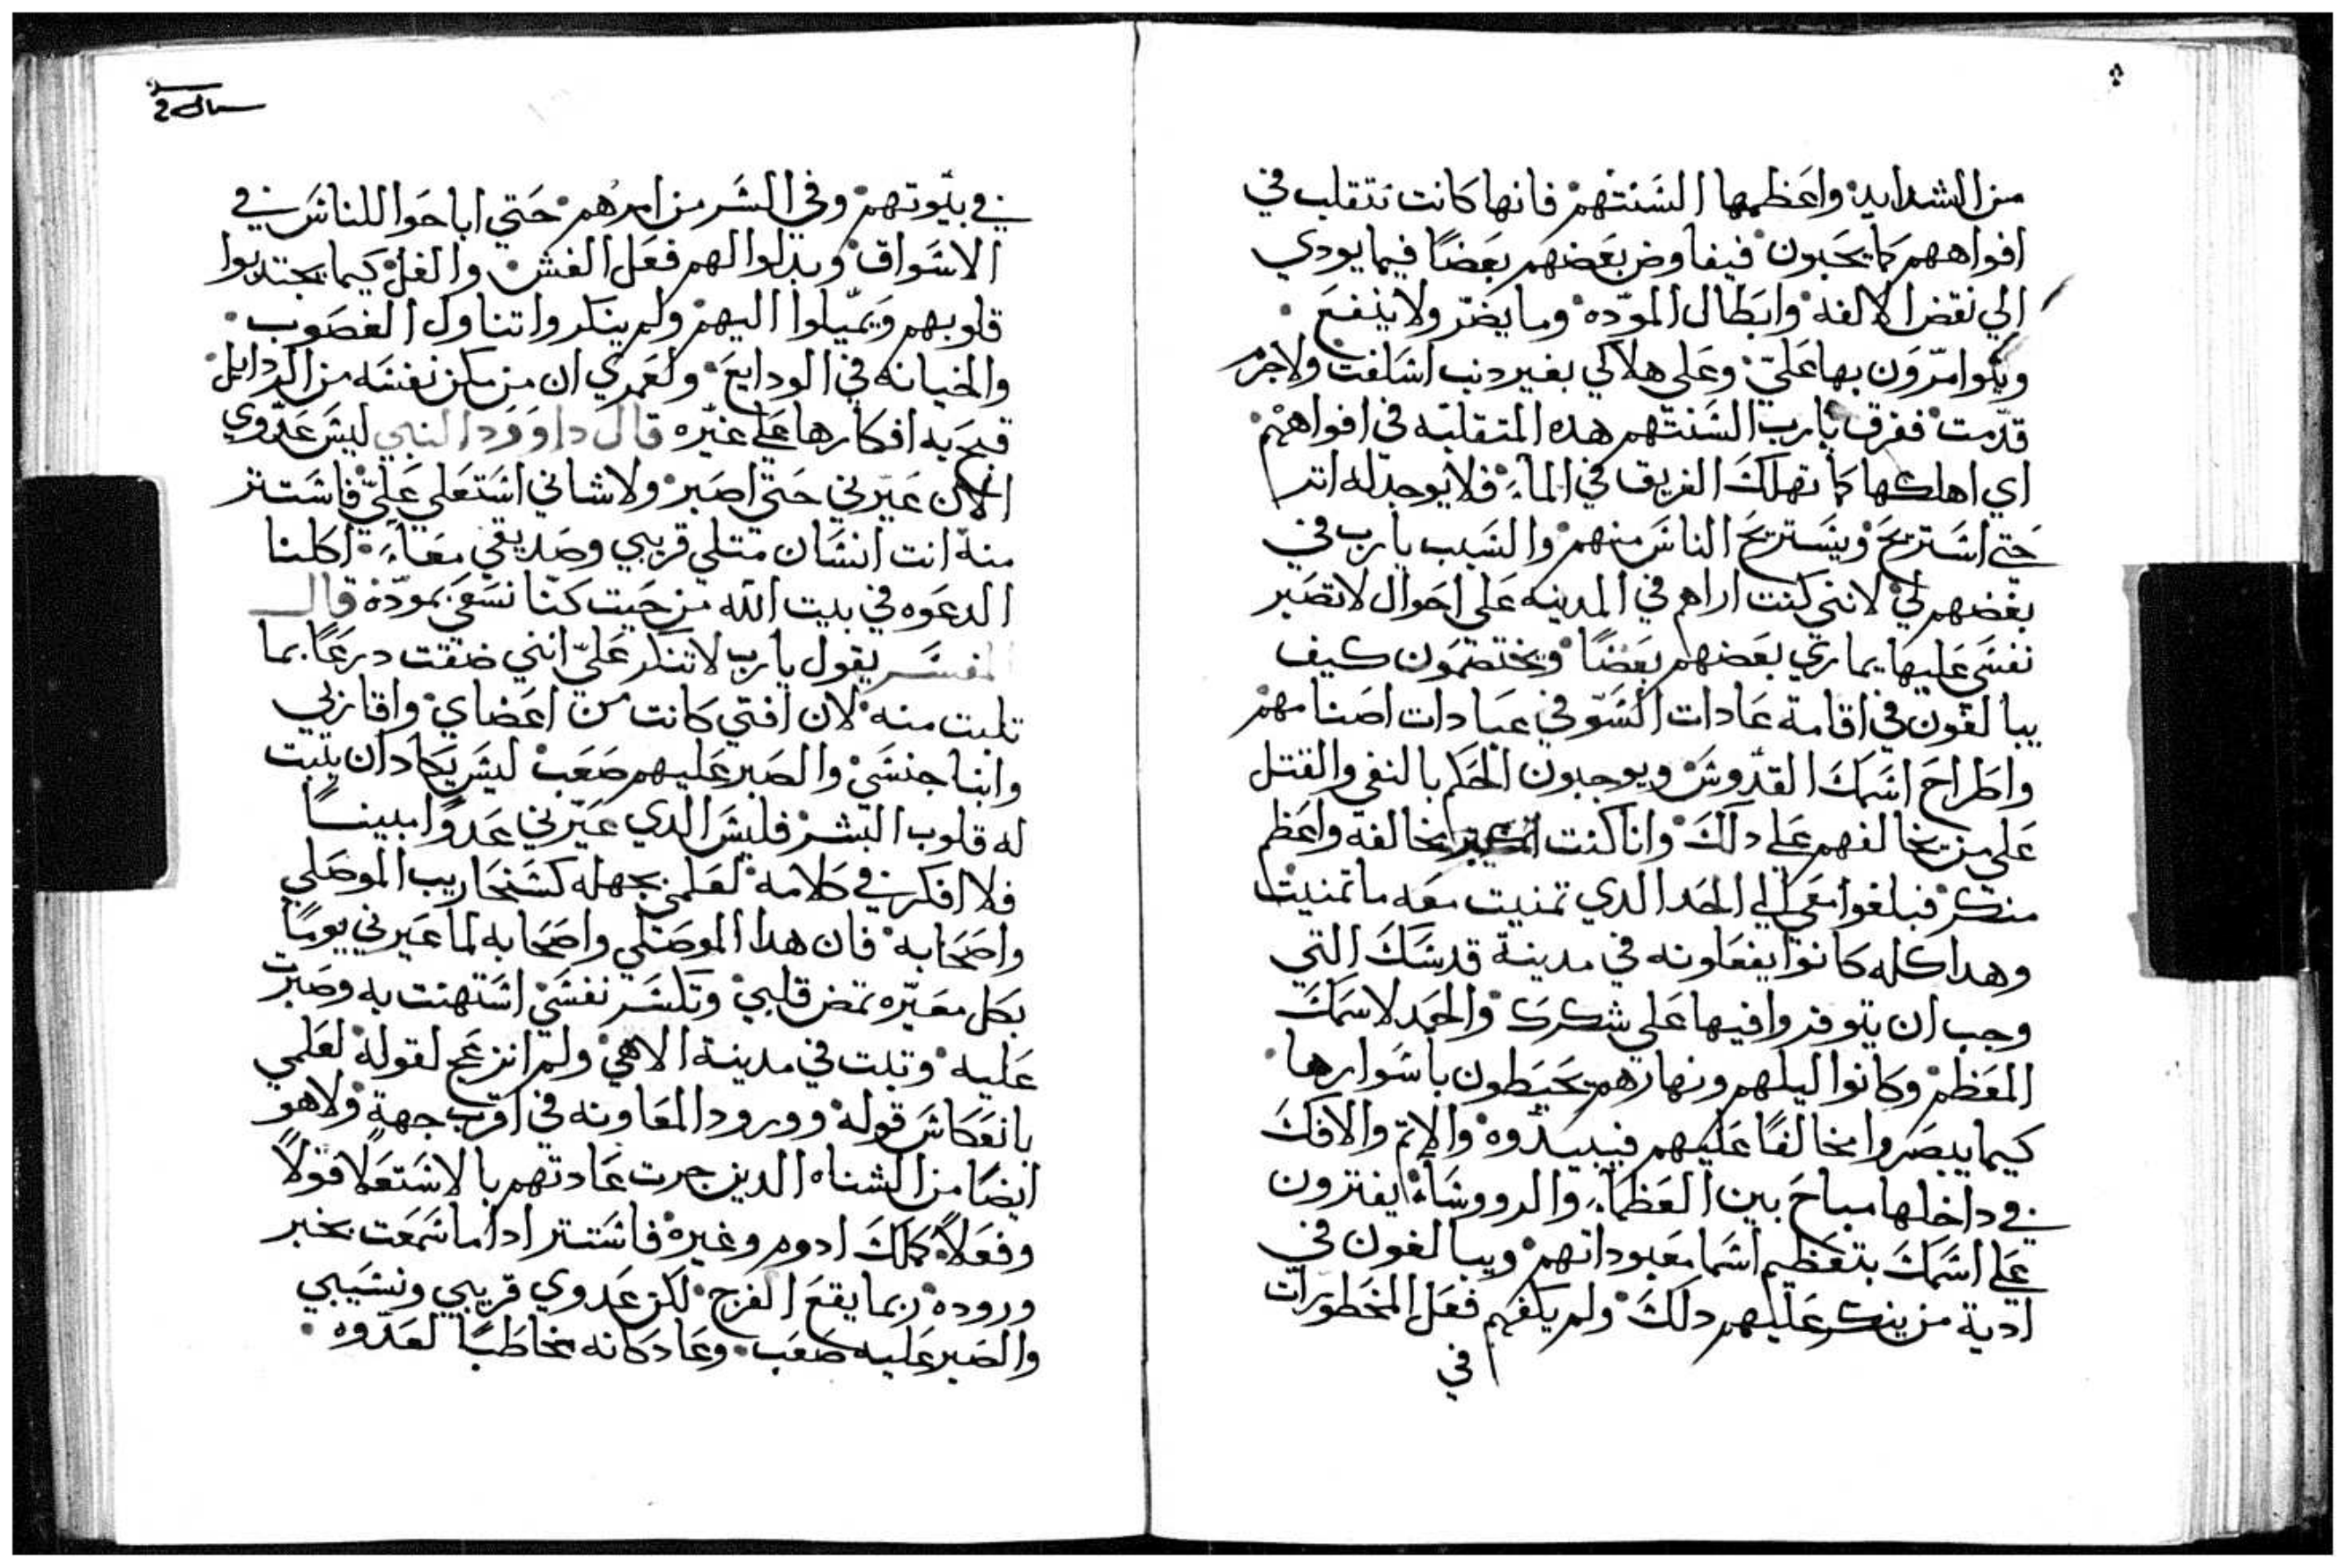 من الشدايد واعظمها السنتهم فانها كانت تتقلب في
افواههم كما يحبون فيفاوض بعضهم بعضًا فيما يودي
الي نقض الالفه وابطال المودّه وما يضرّ ولا ينفع
ويتوامرون بها عليّ وعلى هلاكي بغير دنب اسلفت ولا جرم
قدّمت ففرق يارب السنتهم هده المتقلبه في افواههم
اي اهلكها كما تهلك الغريق في الماء فلا يوجد له اتر
حتى استريح ويستريح الناس منهم والسبب يارب في
بغضهم لي لانني كنت اراهم في المدينه على احوال لا تصبر
نفسي عليها يماري بعضهم بعضًا ويختصمون كيف
يبالغون في اقامة عادات السّو في عبادات اصنامهم
واطراح اسمك القدّوس ويوجبون الحكم بالنفي والقتل
على من يخالفهم على دلك وانا كنت مخالفه واعظم
منكر فبلغوا معي الي الحد الدي تمنيت معه ما تمنيت
وهدا كله كانوا يفعلونه في مدينة قدسك التي
وجب ان يتوفروا فيها على شكرك والحمد لاسمك
المعظم وكانوا ليلهم ونهارهم يحيطون باسوارها
كيما يبصروا مخالفًا عليهم فيبيدوه والاتم والافك
في داخلها مباح بين العظماء والرووساء يفترون
على اسمك بتعظيم اسما معبوداتهم ويبالغون في
ادية من ينكر عليهم دلك ولم يكفهم فعل المحظورات
في
في بيوتهم وفي السر من امرهم حتي اباحوا للناس في
الاسواق وبدلوا لهم فعل الغش والغل كيما يجتدبوا
قلوبهم ويميلوا اليهم ولم ينكروا تناول الغصوب
والخيانه في الودايع ولعمري ان من مكن نفسه من الردايل
قبح به افكارها على غيره قال داوود النبي ليس عدوي
الان عيّرني حتى اصبر ولا شاني استعلى عليّ فاستتر
منه انت انسان متلي قريبي وصديقي معاء اكلنا
الدعوه في بيت الله من حيت كنا نسعى بمودّة قال
المفسر يقول يارب لا تنكر عليّ انني ضقت درعًا بما
تلبت منه لان افتي كانت من اعضاي واقاربي
وابنا جنسي والصبر عليهم صعب ليس يكاد ان يتبت
له قلوب البشر فليس الدي عيّرني عدوًا مبينًا
فلا افكر في كلامه لعلمي بجهله كسنحاريب الموصلي
واصحابه فان هدا الموصلي واصحابه لما عيرني يومًا
بكل معيّره تمض قلبي وتكسر نفسي استهنت به وصبرت
عليه وتبت في مدينة الاهي ولم انزعج لقوله لعلمي
بانعكاس قوله وورود المعاونه في اقرب جهة ولا هو
ايضًا من الشناه الدين جرت عادتهم بالاستعلا قولاً
وفعلاً كملك ادوم وغيره فاستتر ادا ما سمعت بخبر
وروده ربما يقع الفرج لكن عدوي قريبي ونسيبي
والصبر عليه صعب وعاد كانه مخاطبًا لعدّوه